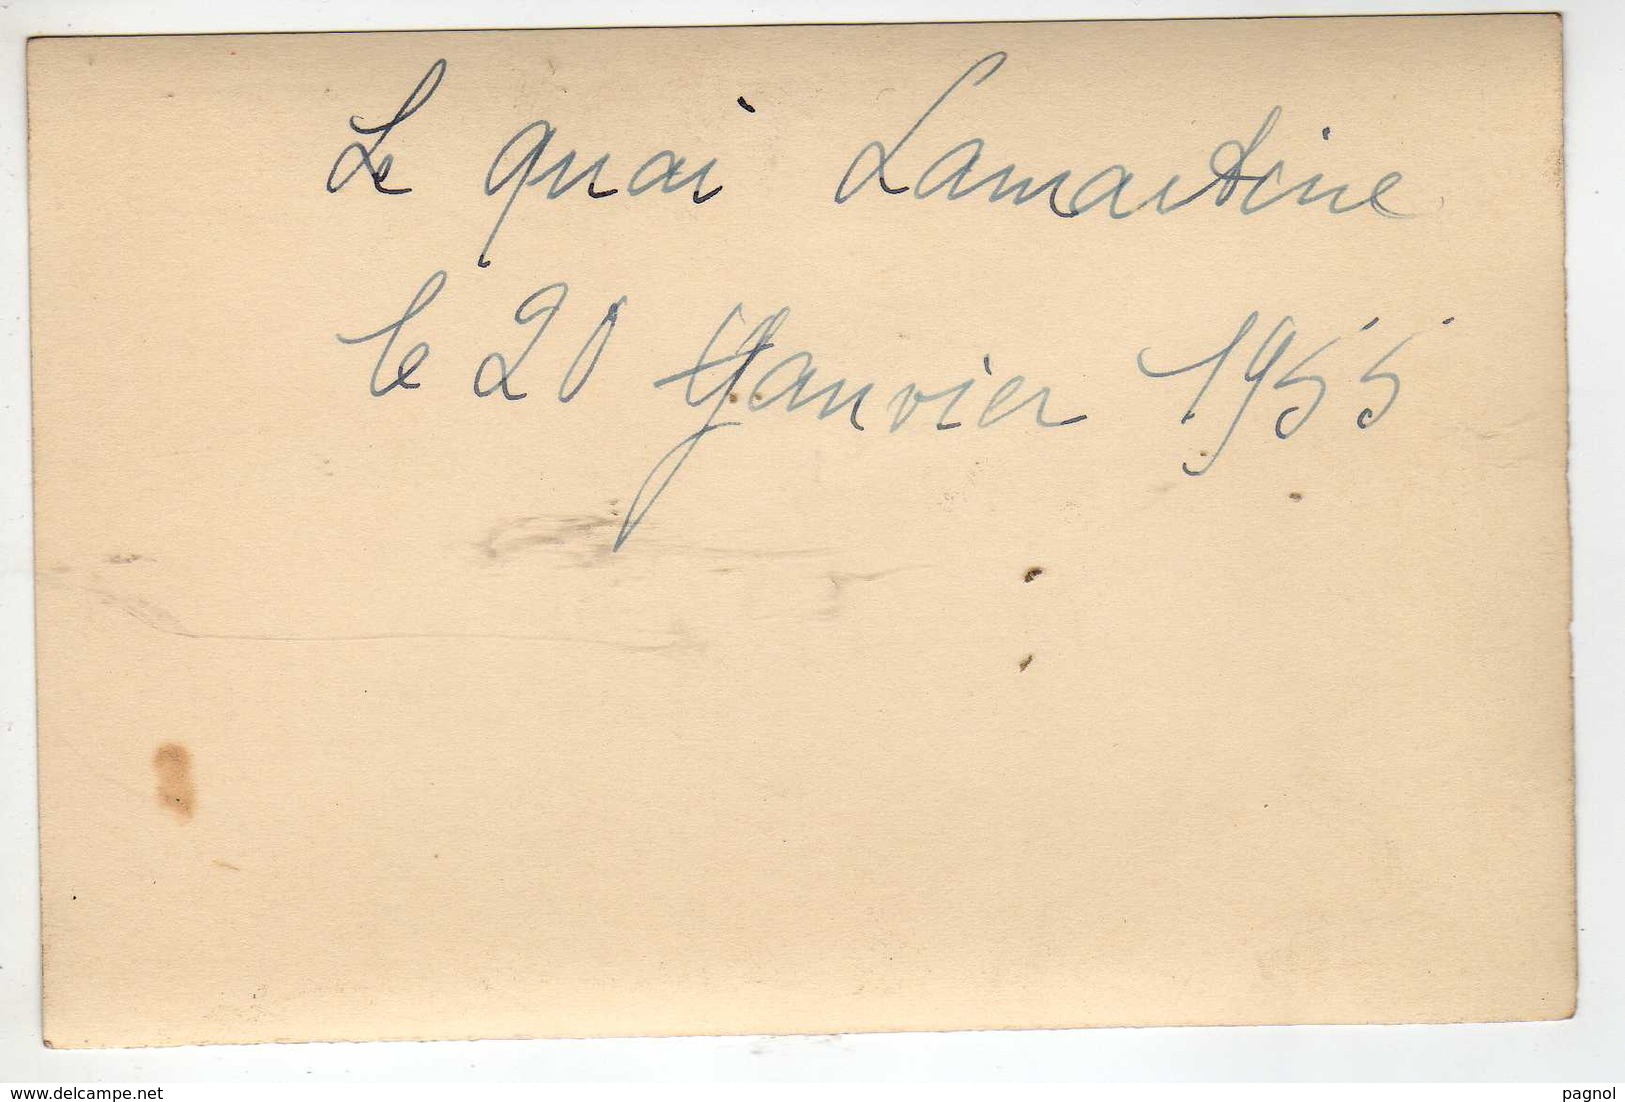 Le quai Lamartine
le 20 Janvier 1955
www.delcampe.net
pagnol